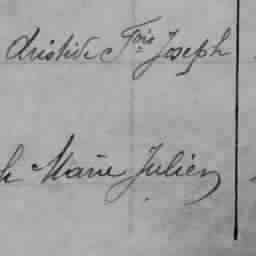 Aristide Fois Joseph
h Marie Julien